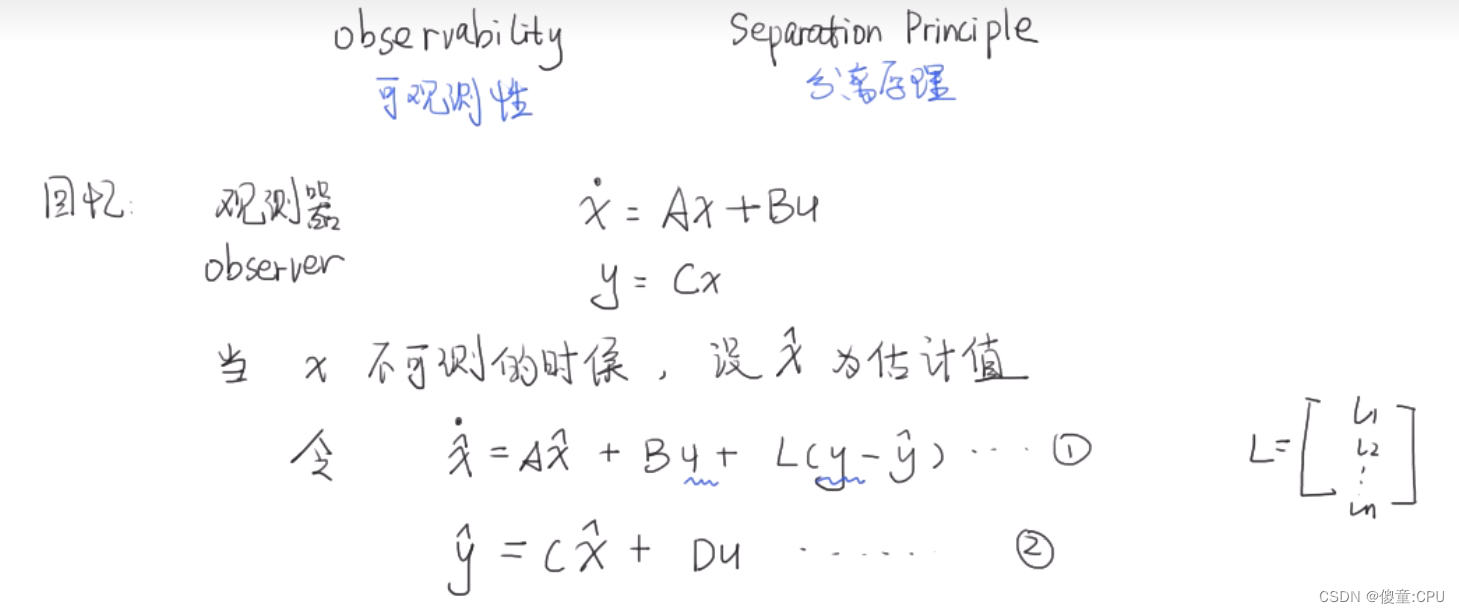 observability Separation Principle
可观测性 分离原理
回忆: 观测器 ẋ = Ax + Bu
observer y = Cx
当 x 不可测的时候, 设 x̂ 为估计值
令 x̂̇ = Ax̂ + Bu + L(y - ŷ) ··· ①
L = [L1 L2 ⋮ Ln]
ŷ = Cx̂ + Du ······ ②
CSDN @傻童:CPU